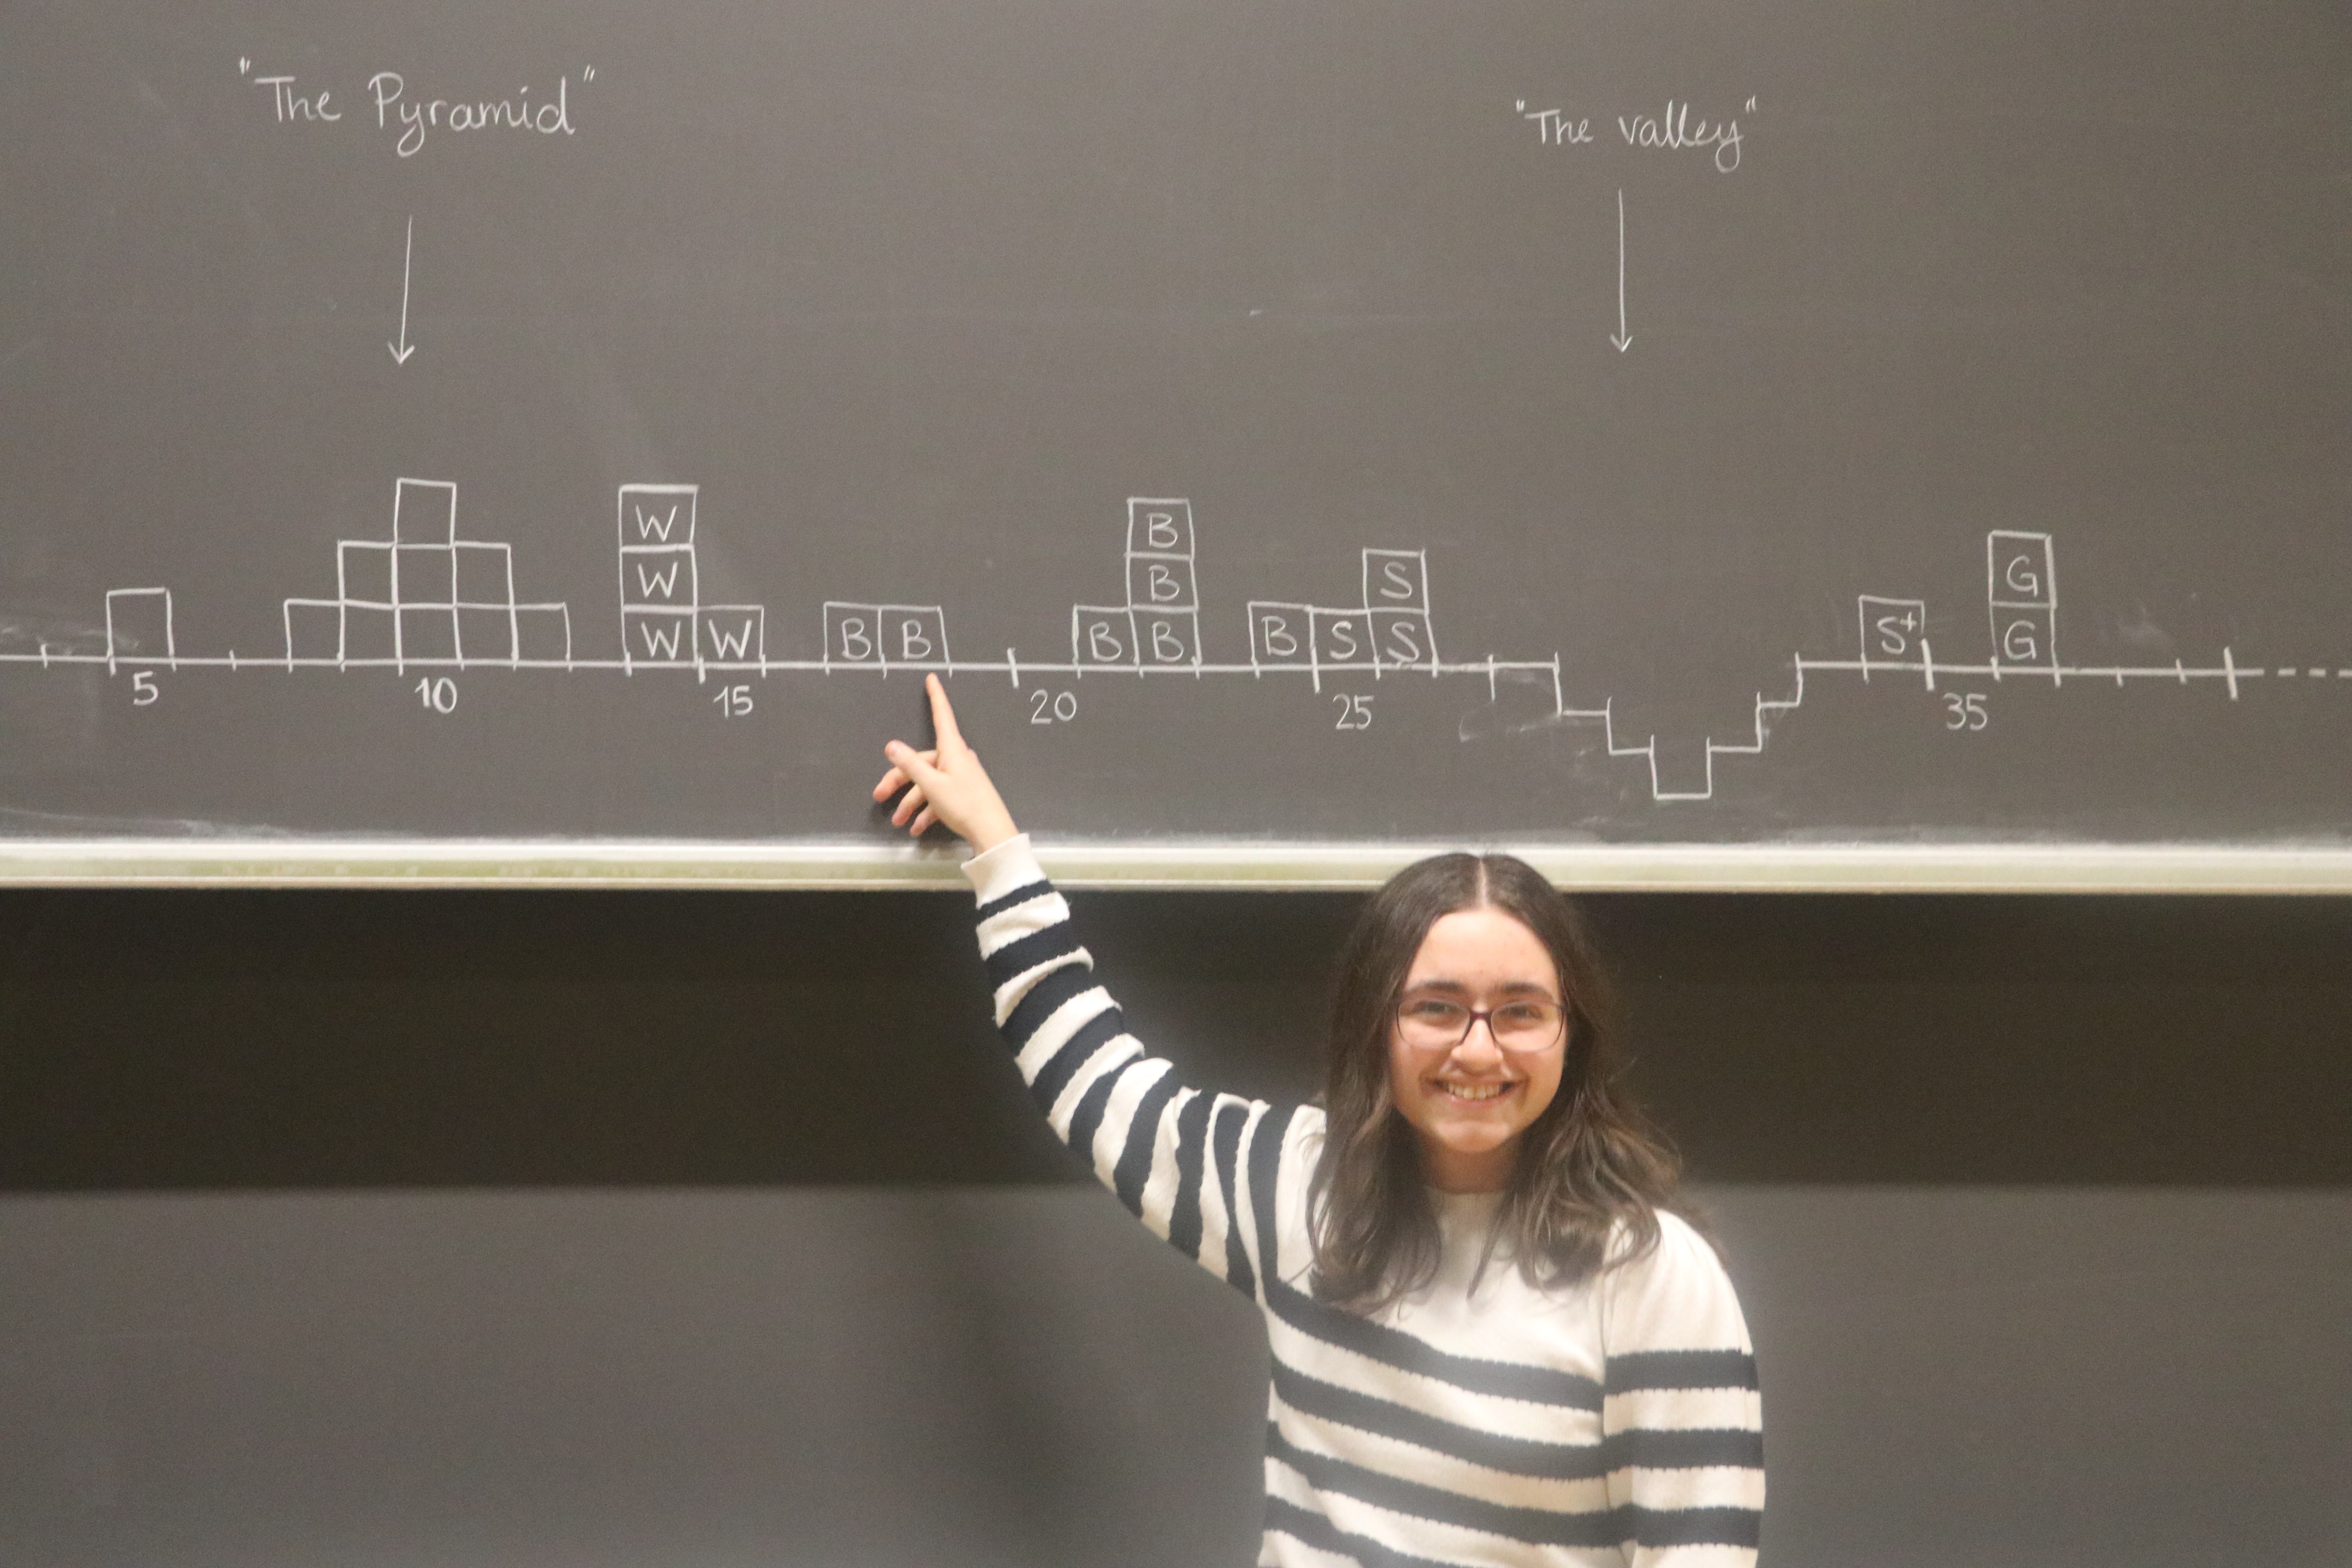 "The Pyramid"
"The valley"
W
B
W
B
S
G
W W
B B
B B
B S S
S+
G
5
10
15
20
25
35